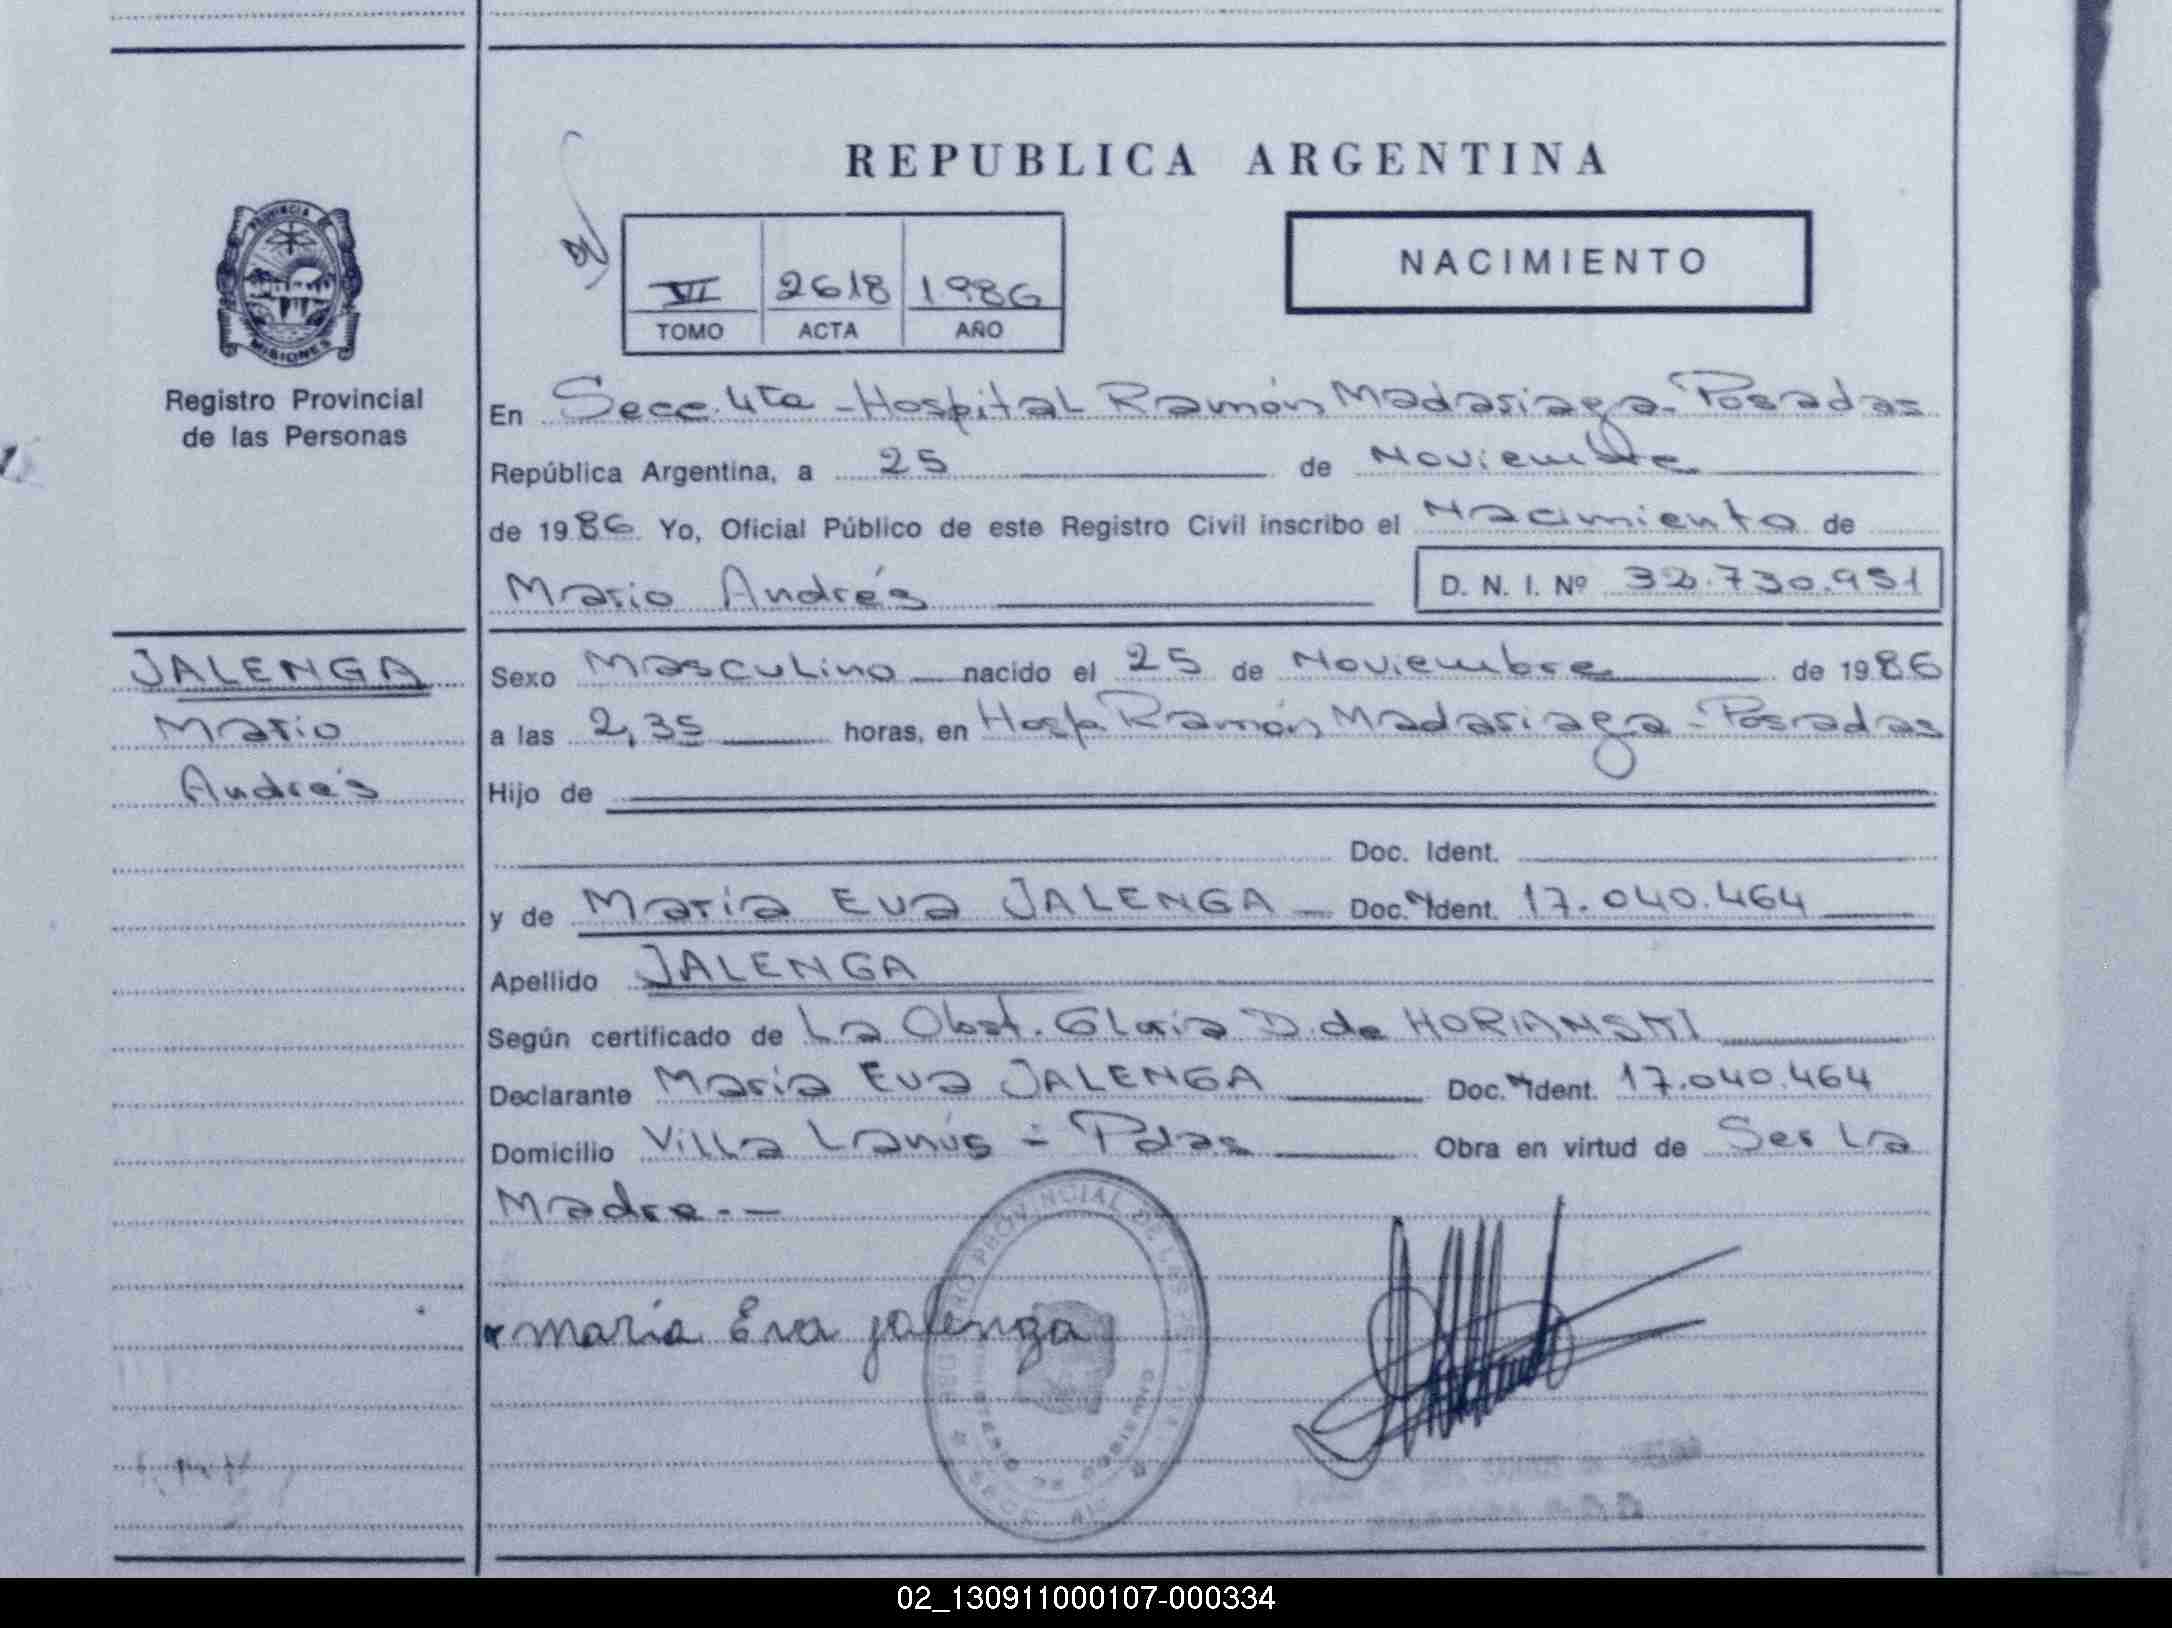 REPUBLICA ARGENTINA
PROVINCIA
MISIONES
Registro Provincial
de las Personas
VI 2618 1986
TOMO ACTA AÑO
NACIMIENTO
En Secc. 4ta - Hospital Ramón Madariaga - Posadas
República Argentina, a 25 de Noviembre
de 1986 Yo, Oficial Público de este Registro Civil inscribo el Nacimiento de
Mario Andrés D. N. I. Nº 32.730.951
JALENGA
Mario
Andrés
Sexo Masculino nacido el 25 de Noviembre de 1986
a las 2,35 horas, en Hosp. Ramón Madariaga - Posadas
Hijo de
Doc. Ident.
y de María Eva JALENGA Doc. Ident. 17.040.464
Apellido JALENGA
Según certificado de La Obst. Gloria D. de HORIANSKI
Declarante María Eva JALENGA Doc. Ident. 17.040.464
Domicilio Villa Lanús - Pdas Obra en virtud de Ser La
Madre.-
REGISTRO PROVINCIAL DE LAS
maría Eva jalenga
02_130911000107-000334